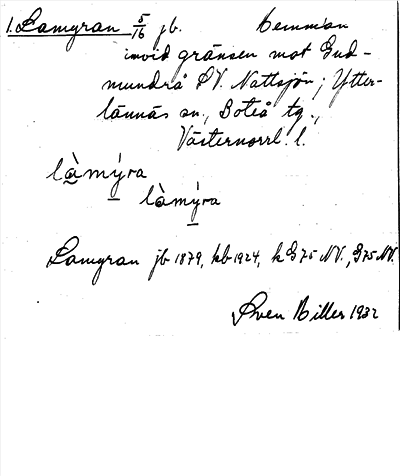 1. Lamyran 5/16 jb. hemman
invid gränsen mot Gud-
mundrå SV. Nattsjön; Ytter-
lännäs sn., Boteå tg.,
Västernorrl. l.
làmýra
làmýra
Lamyran jb 1879, kb 1924, k G75 NV., G75 NV.
Sven Biller 1932